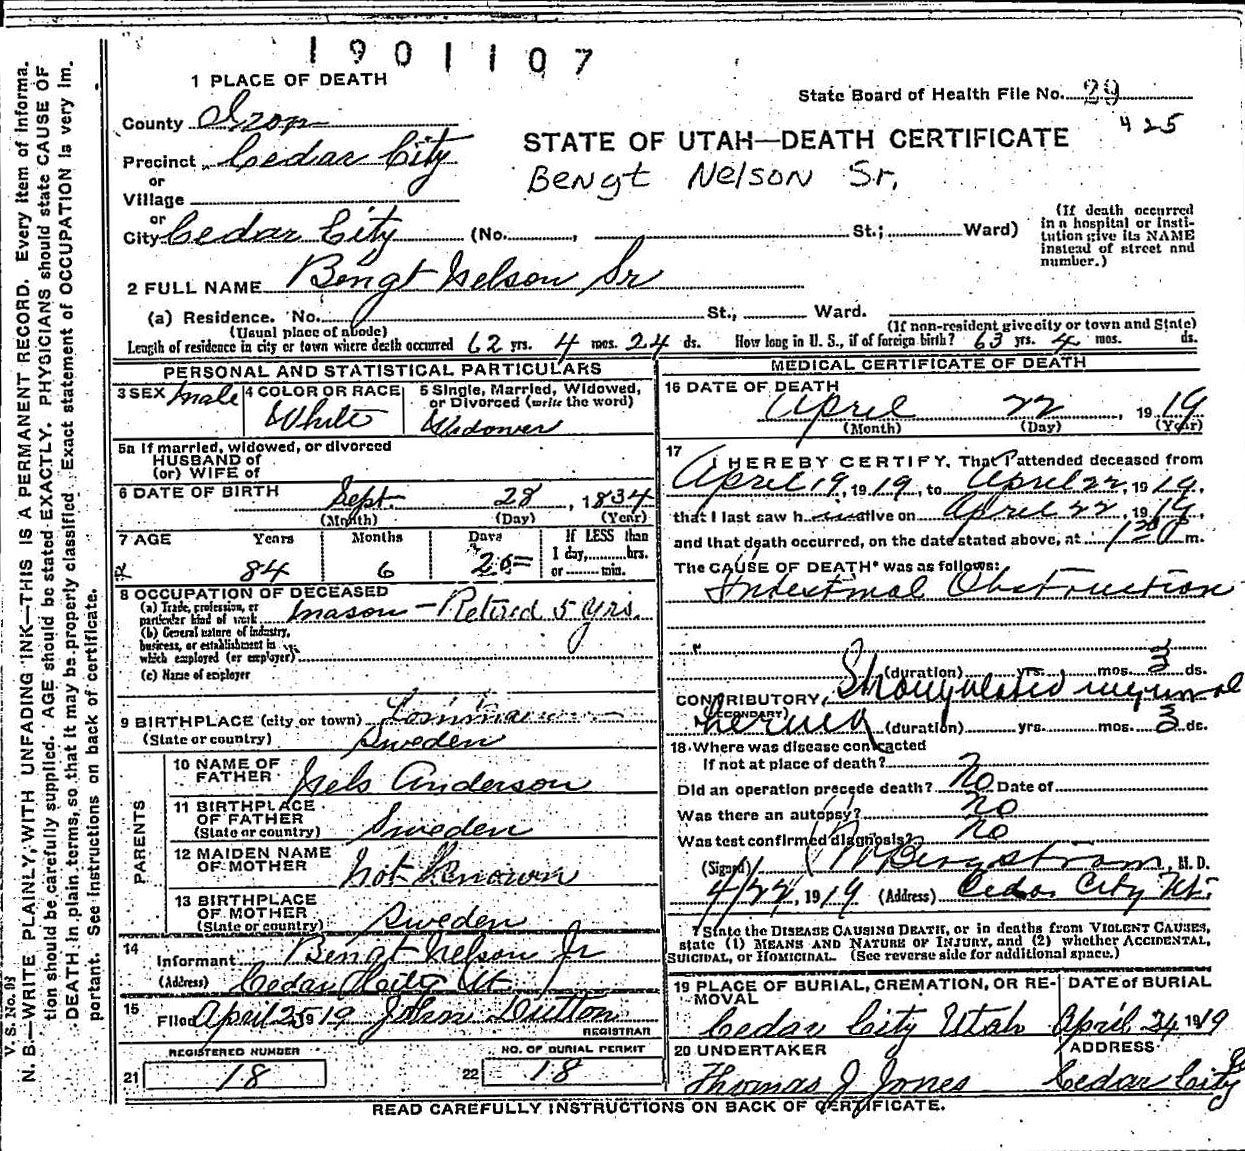 1901107
1 PLACE OF DEATH
State Board of Health File No. 29
425
County Iron
STATE OF UTAH—DEATH CERTIFICATE
Precinct Cedar City
Bengt Nelson Sr.
or
Village
or
City Cedar City (No. , St.; Ward)
(If death occurred in a hospital or institution give its NAME instead of street and number.)
2 FULL NAME Bengt Nelson Sr
(a) Residence. No. St., Ward.
(Usual place of abode) (If non-resident give city or town and State)
Length of residence in city or town where death occurred 62 yrs. 4 mos. 24 ds. How long in U. S., if of foreign birth? 63 yrs. 4 mos. ds.
PERSONAL AND STATISTICAL PARTICULARS
3 SEX Male
4 COLOR OR RACE White
5 Single, Married, Widowed, or Divorced (write the word) Widower
5a If married, widowed, or divorced
HUSBAND of
(or) WIFE of
6 DATE OF BIRTH Sept. 28, 1834
(Month) (Day) (Year)
7 AGE Years Months Days If LESS than
1 day, hrs.
84 6 25 or min.
8 OCCUPATION OF DECEASED
(a) Trade, profession, or
particular kind of work Mason - Retired 5 yrs.
(b) General nature of industry,
business, or establishment in
which employed (or employer)
(c) Name of employer
9 BIRTHPLACE (city or town)
(State or country) Sweden
PARENTS
10 NAME OF FATHER Nels Anderson
11 BIRTHPLACE OF FATHER (State or country) Sweden
12 MAIDEN NAME OF MOTHER Not Known
13 BIRTHPLACE OF MOTHER (State or country) Sweden
14 Informant Bengt Nelson Jr
(Address) Cedar City Ut
15 Filed April 25 1919 John Dutton
REGISTRAR
REGISTERED NUMBER
21 18
NO. OF BURIAL PERMIT
22 18
MEDICAL CERTIFICATE OF DEATH
16 DATE OF DEATH
April 22, 1919
(Month) (Day) (Year)
17 I HEREBY CERTIFY, That I attended deceased from
April 19, 1919, to April 22, 1919.
that I last saw him alive on April 22, 1919,
and that death occurred, on the date stated above, at 120 m.
The CAUSE OF DEATH* was as follows:
Intestinal Obstruction
(duration) yrs. mos. 3 ds.
CONTRIBUTORY Strangulated inguinal
(SECONDARY) hernia (duration) yrs. mos. 3 ds.
18 Where was disease contracted
If not at place of death?
Did an operation precede death? No Date of
Was there an autopsy? No
Was test confirmed diagnosis? No
(Signed) Bergstrom, M. D.
4/22, 1919 (Address) Cedar City Ut.
*State the DISEASE CAUSING DEATH, or in deaths from VIOLENT CAUSES,
state (1) MEANS AND NATURE OF INJURY, and (2) whether ACCIDENTAL,
SUICIDAL, or HOMICIDAL. (See reverse side for additional space.)
19 PLACE OF BURIAL, CREMATION, OR RE-
MOVAL
Cedar City Utah
DATE OF BURIAL
April 24 1919
20 UNDERTAKER
Thomas J Jones
ADDRESS
Cedar City
READ CAREFULLY INSTRUCTIONS ON BACK OF CERTIFICATE.
V. S. No. 98
N. B.—WRITE PLAINLY, WITH UNFADING INK—THIS IS A PERMANENT RECORD. Every item of informa-
tion should be carefully supplied. AGE should be stated EXACTLY. PHYSICIANS should state CAUSE OF
DEATH in plain terms, so that it may be properly classified. Exact statement of OCCUPATION is very im-
portant. See instructions on back of certificate.